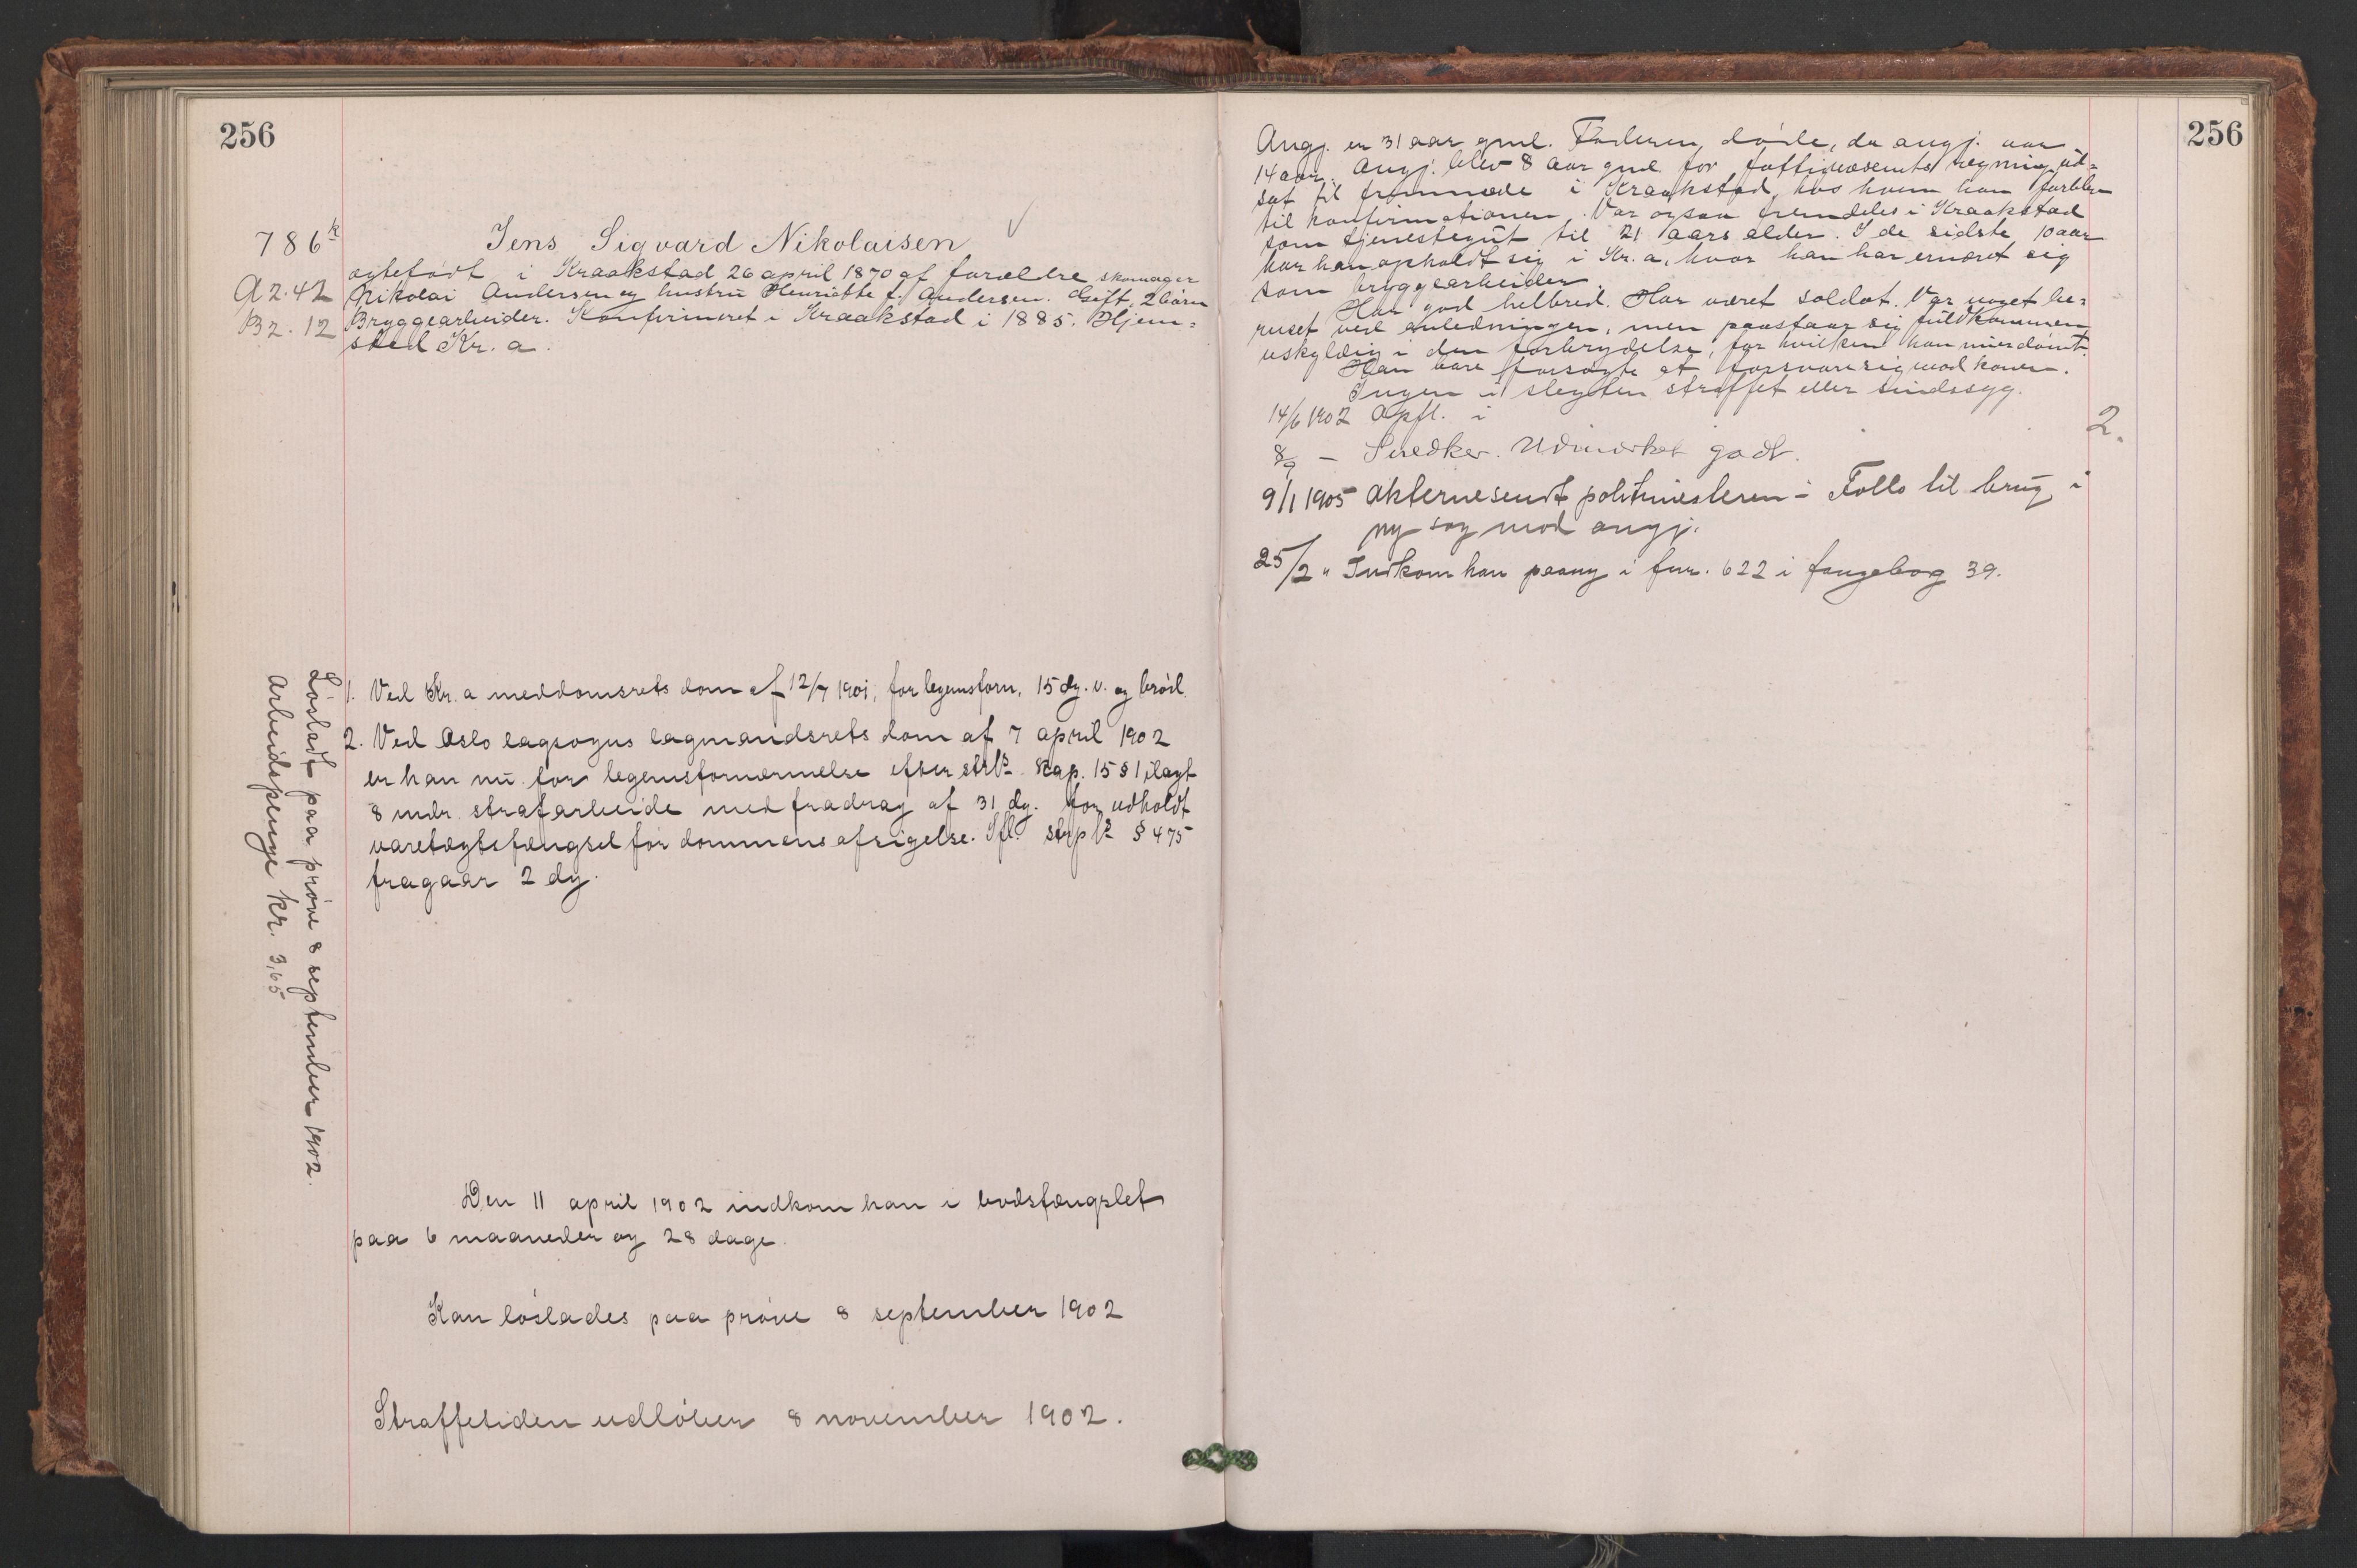 256
786k
A 2.42
B 2.12
Jens Sigvard Nikolaisen ✓
ægtefødt i Kraakstad 26 april 1870 af forældre skomager
Nikolai Andersen og hustru Henriette f. Andersen. Gift, 2 børn
Bryggearbeider. Konfirmeret i Kraakstad i 1885. Hjem=
sted Kr.a.
1. Ved Kr.a meddomsrets dom af 12/7 1901, for legemsforn, 15 dg. v. og brød.
2. Ved Oslo lagsogns lagmandsrets dom af 7 april 1902
er han nu for legemsfornærmelse efter strl. kap. 15 § 1 ilagt
8 mdr. strafarbeide med fradrag af 31 dg. for udholdt
varetægtsfængsel før dommens afsigelse. Ifl. strpl. § 475
fragaar 2 dg.
Løsladt paa prøve 8 september 1902.
Arbeidspenge kr. 3,65
Den 11 april 1902 indkom han i bodsfængslet
paa 6 maaneder og 28 dage.
Kan løslades paa prøve 8 september 1902
Straffetiden udløber 8 november 1902.
256
Angj. er 31 aar gml. Faderen døde, da angj. var
14 aar. Angj. blev 8 aar gml. for fattigvæsenets regning ud=
sat til fremmede i Kraakstad, hos hvem han forblev
til konfirmationen. Var ogsaa fremdeles i Kraakstad
som tjenestegut til 21 aars alder. I de sidste 10 aar
har han opholdt sig i Kr.a, hvor han har ernæret sig
som bryggearbeider.
Har god helbred. Har været soldat. Var noget be=
ruset ved anledningen, men paastaar sig fuldkommen
uskyldig i den forbrydelse, for hvilken han nu er dømt.
Han bare forsøgte at forsvare sig mod konen.
Ingen i slegten straffet eller sindssyg.
14/6 1902 Opfl. i
2.
8/9 — Snedker. Udmærket godt.
9/1 1905 Akterne sendt politimesteren i Follo til brug i
ny sag mod angj.
25/2 " Indkom han paany i fnr. 622 i fangebog 39.